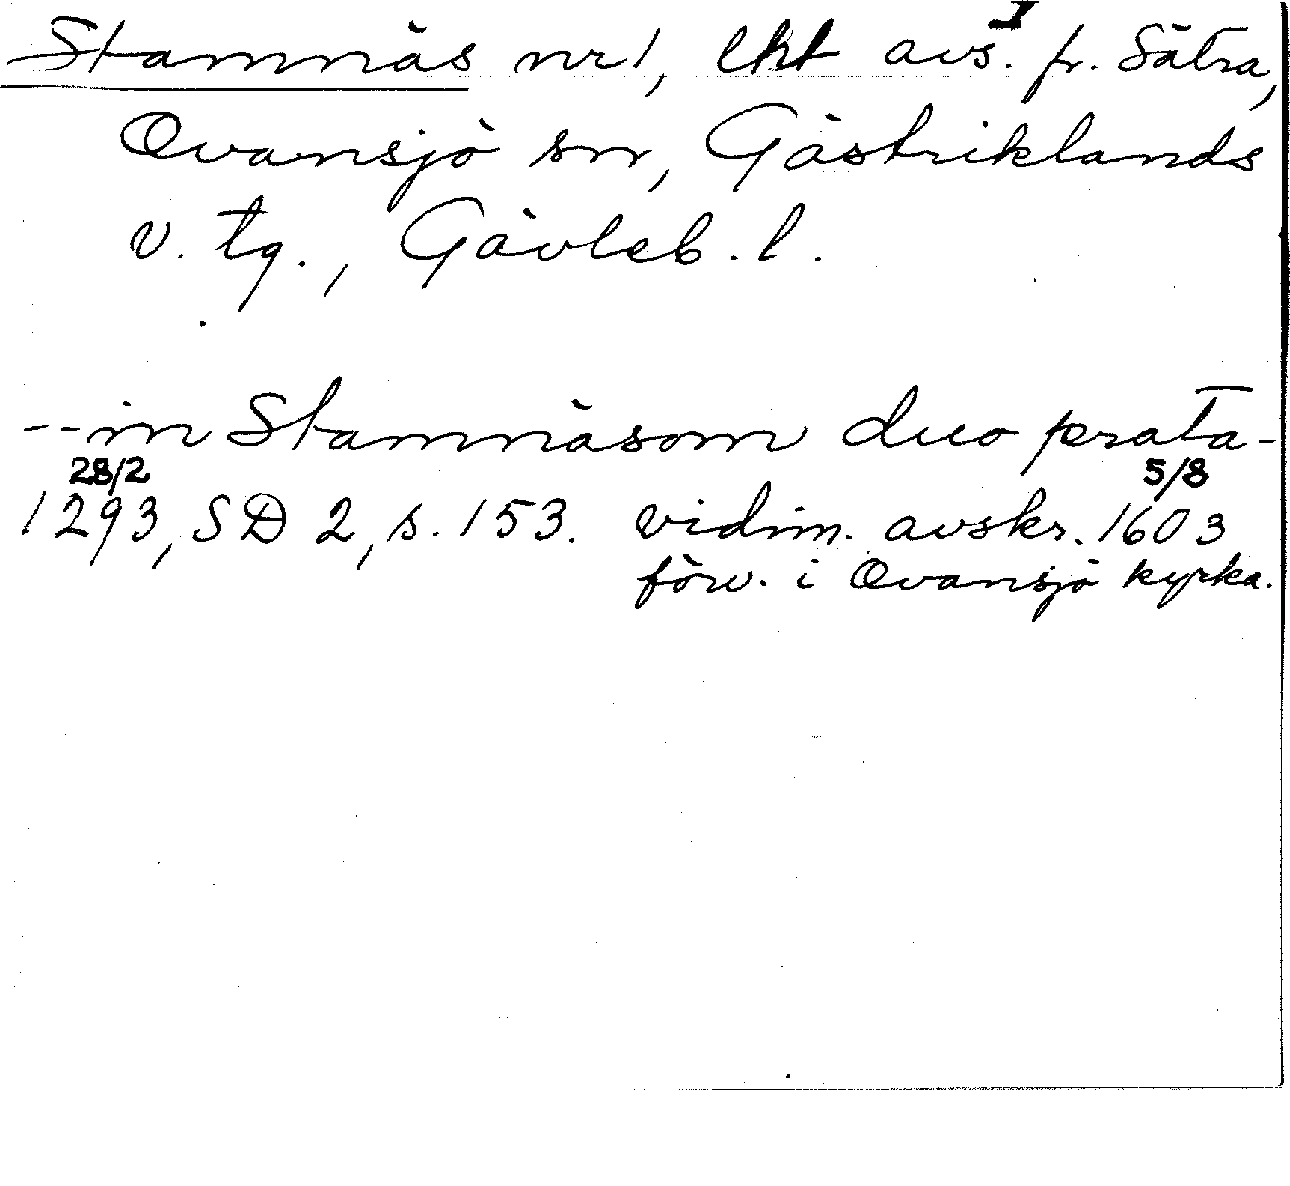 Stamnäs nr 1, lht avs. fr. Sätra,
Ovansjö sn, Gästriklands
v. tg., Gävleb. l.
-- in Stamnäsom duo prata -
28/2 5/8
1293, SD 2, s. 153. vidim. avskr. 1603
förv. i Ovansjö kyrka.